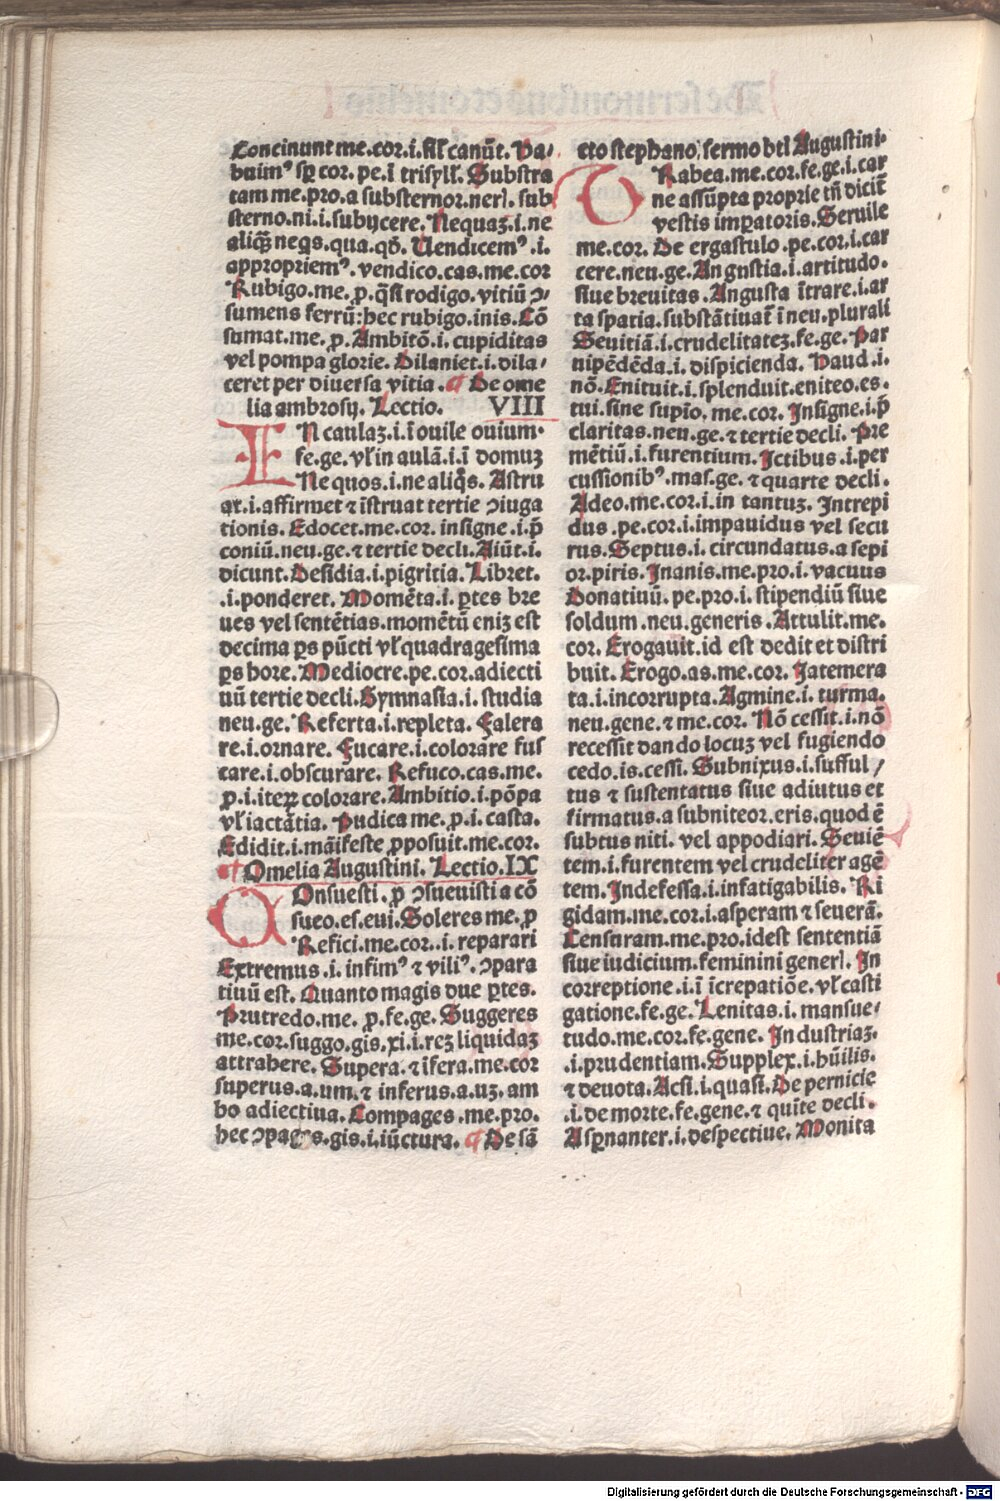 Concinunt me.cor.i.sil̄ canūt. Ha/
buim⁹ sꝑ cor.pe.ī trisyll̄. Substra
tam me.pro.a substernor.neri. sub
sterno.ni.i.subijcere. Nequaꝫ.i.ne
aliqͥs neqs.qua.qd̄. Uendicem⁹.i.
appropriem⁹.vendico.cas.me.cor
Rubigo.me.ꝓ.qͣsi rodigo.vitiū ↄ/
sumens ferrū:hec rubigo.inis. Cō
sumat.me.ꝓ. Ambitō.i.cupiditas
vel pompa glorie. Dilaniet.i.dila/
ceret per diuersa vitia. ¶ De ome
lia ambrosij. Lectio. VIII
IN caulaꝫ.i.ī ouile ouium.
fe.ge.vl̄ in aulā.i.ī domuꝫ
Ne quos.i.ne aliqͦs. Astru
at.i.affirmet ⁊ īstruat tertie ↄiuga
tionis. Edocet.me.cor. insigne.i.p̄
coniū.neu.ge.⁊ tertie decli. Aiūt.i.
dicunt. Desidia.i.pigritia. Libret.
.i.ponderet. Momēta.i. ꝑtes bre
ues vel sentētias.momētū eniꝫ est
decima ꝑs pūcti vl̄ quadragesima
ꝑs hore. Mediocre.pe.cor.adiecti
uū tertie decli. Gymnasia.i.studia
neu.ge. Referta.i.repleta. Falera
re.i.ornare. Fucare.i.colorare fus
care.i.obscurare. Refuco.cas.me.
ꝓ.i.iteꝝ colorare. Ambitio.i.pōpa
vl̄ iactātia. Pudica me.ꝓ.i.casta.
Edidit.i.māifeste ꝓposuit.me.cor.
¶ Omelia Augustini. Lectio. IX
COnsuesti.ꝓ ↄsueuisti a cō
sueo.es.eui. Soleres me.ꝓ
Refici.me.cor..i.reparari
Extremus.i.infim⁹ ⁊ vili⁹.ↄpara
tiuū est. Quanto magis due ꝑtes.
Prutredo.me.ꝓ.fe.ge. Suggeres
me.cor.suggo.gis.xi.i.reꝫ liquidaꝫ
attrahere. Supera.⁊ īfera.me.cor
superus.a.um.⁊ inferus.a.uꝫ.am
bo adiectiua. Compages.me.pro.
hec ↄpages.gis.i.iūctura. ¶ De sā
cto stephano, sermo bti Augustini.
TRabea.me.cor.fe.ge.i.car
ne assūpta proprie tn̄ dicit̄
vestis imꝑatoris. Seruile
me.cor. De ergastulo.pe.cor.i.car
cere.neu.ge. Angustia.i.artitudo.
siue breuitas. Angusta ītrare.i.ar
ta spatia.substātiuat̄ ī neu.plurali
Seuitiā.i.crudelitateꝫ.fe.ge. Par
nipēdēda.i.dispicienda. Haud.i.
nō. Enituit.i.splenduit.eniteo.es.
tui.sine supīo.me.cor. Insigne.i.p̄
claritas.neu.ge.⁊ tertie decli. Pre
mētiū.i.furentium. Ictibus.i.per
cussionib⁹.mas.ge.⁊ quarte decli.
Adeo.me.cor.i.in tantuꝫ. Intrepi
dus.pe.cor.i.impauidus vel secu
rus. Septus.i.circundatus.a sepi
or.piris. Inanis.me.pro.i.vacuus
Donatiuū.pe.pro.i.stipendiū siue
soldum.neu.generis. Attulit.me.
cor. Erogauit.id est dedit et distri
buit. Erogo.as.me.cor. Intemera
ta.i.incorrupta. Agmine.i.turma.
neu.gene.⁊ me.cor. Nō cessit.i.nō
recessit dando locuꝫ vel fugiendo
cedo.is.cessi. Subnixus.i.sufful/
tus ⁊ sustentatus siue adiutus et
firmatus.a subniteor.eris.quod ē
subtus niti. vel appodiari. Seuiē
tem.i.furentem vel crudeliter agē
tem. Indefessa.i.infatigabilis. Ri
gidam.me.cor.i.asperam ⁊ seuerā.
Censuram.me.pro.idest sententiā
siue iudicium.feminini generi. In
correptione.i.ī īcrepatiōe.vl̄ casti
gatione.fe.ge. Lenitas.i.mansue/
tudo.me.cor.fe.gene. Industriaꝫ.
.i.prudentiam. Supplex.i.hūilis.
⁊ deuota. Acsi.i.quasi. De pernicie
.i.de morte.fe.gene.⁊ quīte decli.
Asꝑnanter.i.despectiue. Monita
Digitalisierung gefördert durch die Deutsche Forschungsgemeinschaft - DFG